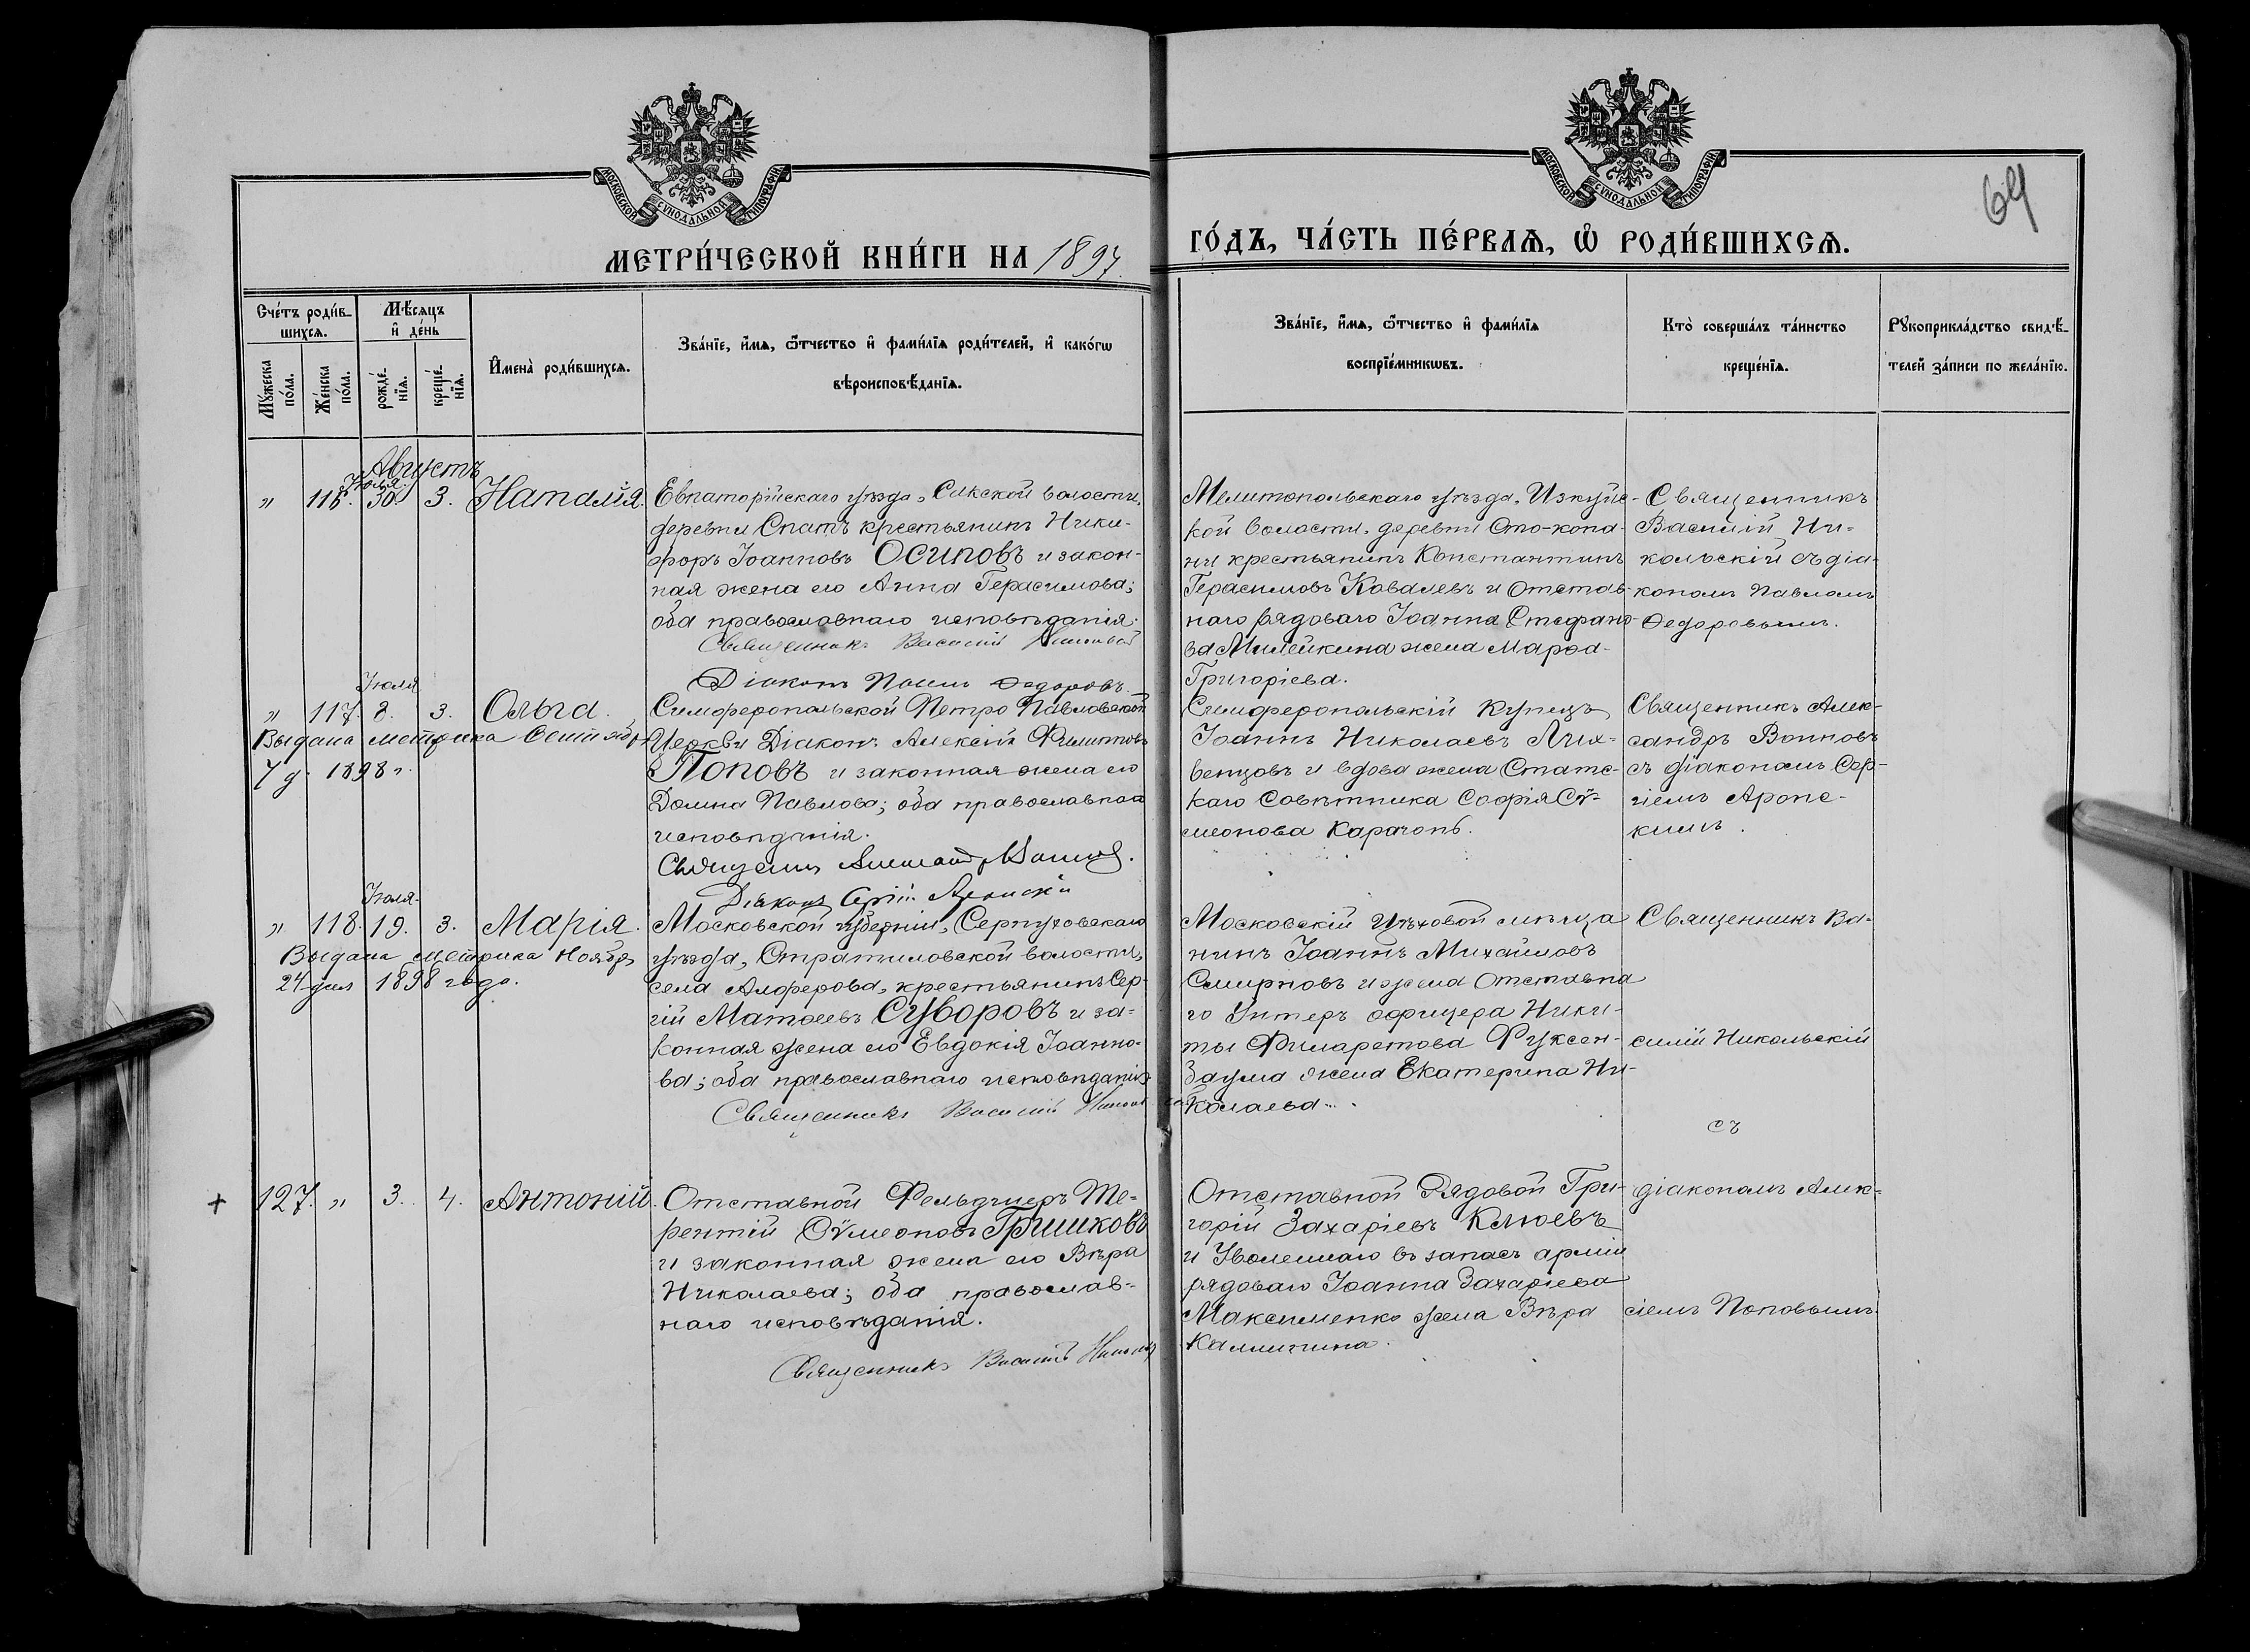 МОСКОВСКОЙ СѴНОДАЛЬНОЙ ТИПОГРАФІИ
МОСКОВСКОЙ СѴНОДАЛЬНОЙ ТИПОГРАФІИ
64
МЕТРИ́ЧЕСКОЙ КНИ́ГИ НА 1897.
ГО́ДЪ, ЧА́СТЬ ПЕ́РВАѦ, Ѽ РОДИ́ВШИХСѦ.
Сче́тъ роди́в-
шихсѧ.
Мѣ́сѧцъ
и҆ де́нь
Мꙋ́жеска
по́ла.
Же́нска
по́ла.
рожде́-
нїѧ.
креще́-
нїѧ.
И҆мена̀ роди́вшихсѧ.
Зва́нїе, и҆́мѧ, ѻ҆́тчество и҆ фами́лїѧ роди́телей, и҆ како́гѡ
вѣроисповѣ́данїѧ.
Зва́нїе, и҆́мѧ, ѻ҆́тчество и҆ фами́лїѧ
воспрїе́мникѡвъ.
Кто̀ соверша́лъ та́инство
креще́нїѧ.
Рꙋкоприкла́дство свидѣ́-
телей за́писи по жела́нїю.
Августъ
Іюля.
„ 116. 30. 3. Наталія.
Евпаторійскаго уѣзда, Сакской волости,
деревни Спатъ крестьянинъ Ники-
форъ Іоанновъ Осиповъ и закон-
ная жена его Анна Герасимова;
оба православнаго исповѣданія.
Священникъ Василій Никольскій
Діаконъ Павелъ Ѳедоровъ.
Мелитопольскаго уѣзда,
кой волости, деревни Сто-копа-
ни крестьянинъ Константинъ
Герасимовъ Ковалевъ и отстав-
наго рядоваго Іоанна Стефано-
ва Милейкина жена Марѳа
Григоріева.
Священникъ
Василій Ни-
кольскій съ діа-
кономъ Павломъ
Ѳедоровымъ.
Іюля
„ 117. 8. 3. Ольга.
Выдана метрика Сентября
7 д. 1898 г.
Симферопольской Петро Павловской
Церкви Діаконъ Алексій Филипповъ
Поповъ и законная жена его
Домна Павлова; оба православнаго
исповѣданія.
Священникъ Александръ Воиновъ.
Діаконъ Сергій Аронскій
Симферопольскій Купецъ
Іоаннъ Николаевъ Лих-
венцовъ и вдова жена Статс-
каго Совѣтника Софія Сѵ-
меонова Карачонъ.
Священникъ Алек-
сандръ Воиновъ
съ діакономъ Сер-
гіемъ Аронс-
кимъ.
Іюля
„ 118. 19. 3. Марія.
Выдана метрика Ноября
24 дня 1898 года.
Московской губерніи, Серпуховскаго
уѣзда, Стратиловской волости,
села Алферова, крестьянинъ Сер-
гій Матѳеевъ Суворовъ и за-
конная жена его Евдокія Іоанно-
ва; оба православнаго исповѣданія
Священникъ Василій Никольскій
Московскій Цѣховой мѣща
нинъ Іоаннъ Михайловъ
Смирновъ и жена Отставна
го Унтеръ офицера Ники-
ты Филаретова Фуксен-
заума жена Екатерина Ни-
колаева.
Священникъ Ва-
силій Никольскій
съ
+ 127. „ 3. 4. Антоній.
Отставной Фельдшеръ Те-
рентій Сѵмеоновъ Гришковъ
и законная жена его Вѣра
Николаева; оба православ-
наго исповѣданія.
Священникъ Василій Никольскій
Отставной Рядовой Гри-
горій Захаріевъ Клюевъ
и Уволеннаго въ запасъ арміи
рядоваго Іоанна Захаріева
Максименко жена Вѣра
Каллинина.
діакономъ Алек-
сіемъ Поповымъ.